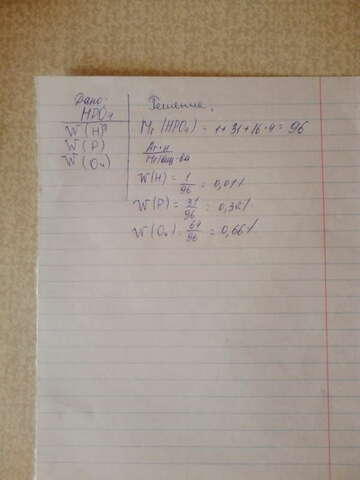 Дано:
HPO₄
W(H)
W(P)
W(O₄)
Решение.
Mr(HPO₄) = 1+31+16·4=96
Ar·n
W(H) = 1/96 = 0,01%
W(P) = 31/96 = 0,32%
W(O₄) = 64/96 = 0,66%